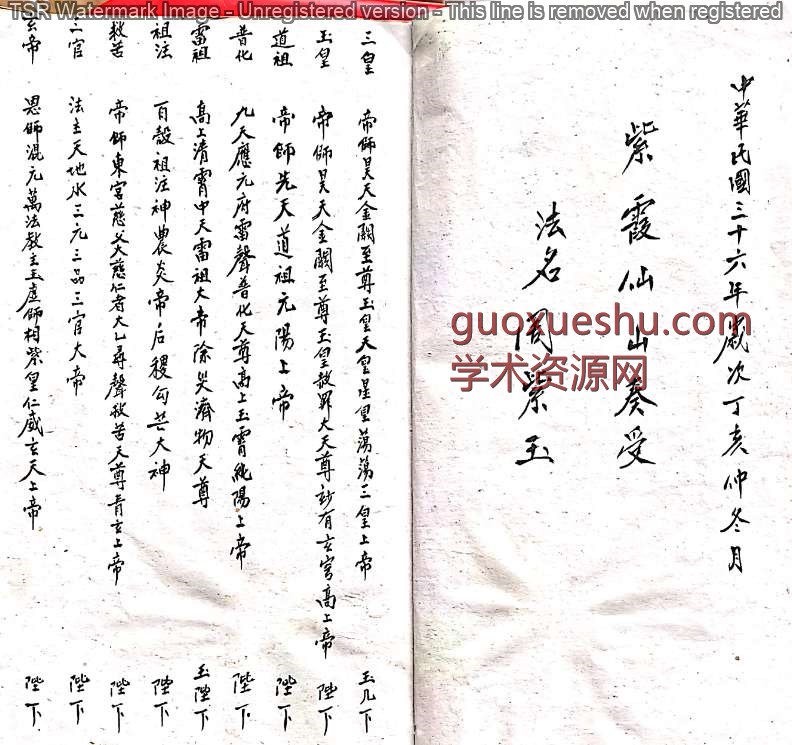 TSR Watermark Image - Unregistered version - This line is removed when registered
中華民國三十六年歲次丁亥仲冬月
紫霞仙山奏受
法名闾紫玉
guoxueshu.com
学术资源网
三皇 帝師昊天金闕至尊玉皇天皇星皇蕩蕩三皇上帝 玉几下
玉皇 帝師昊天金闕至尊玉皇赦罪大天尊妙有玄穹高上帝 陛下
道祖 帝師先天道祖元陽上帝 陛下
普化 九天應元府雷聲普化天尊高上玉霄純陽上帝 陛下
雷祖 高上清霄中天雷祖大帝除災濟物天尊 玉陛下
祖注 百穀祖注神農炎帝后稷勾芒大神 陛下
救苦 帝師東宮慈父大慈仁者太乙尋聲救苦天尊青玄上帝 陛下
三官 法主天地水三元三品三官大帝 陛下
玄帝 恩師混元萬法教主玉虛師相紫皇仁威玄天上帝 陛下